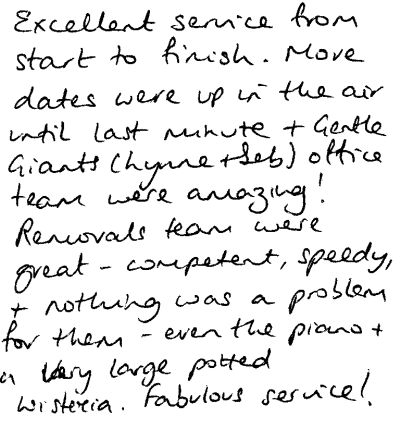 Excellent service from
start to finish. Move
dates were up in the air
until last minute + Gentle
Giants (Lynne + Seb) office
team were amazing!
Removals team were
great - competent, speedy,
+ nothing was a problem
for them - even the piano +
a very large potted
wisteria. Fabulous service!